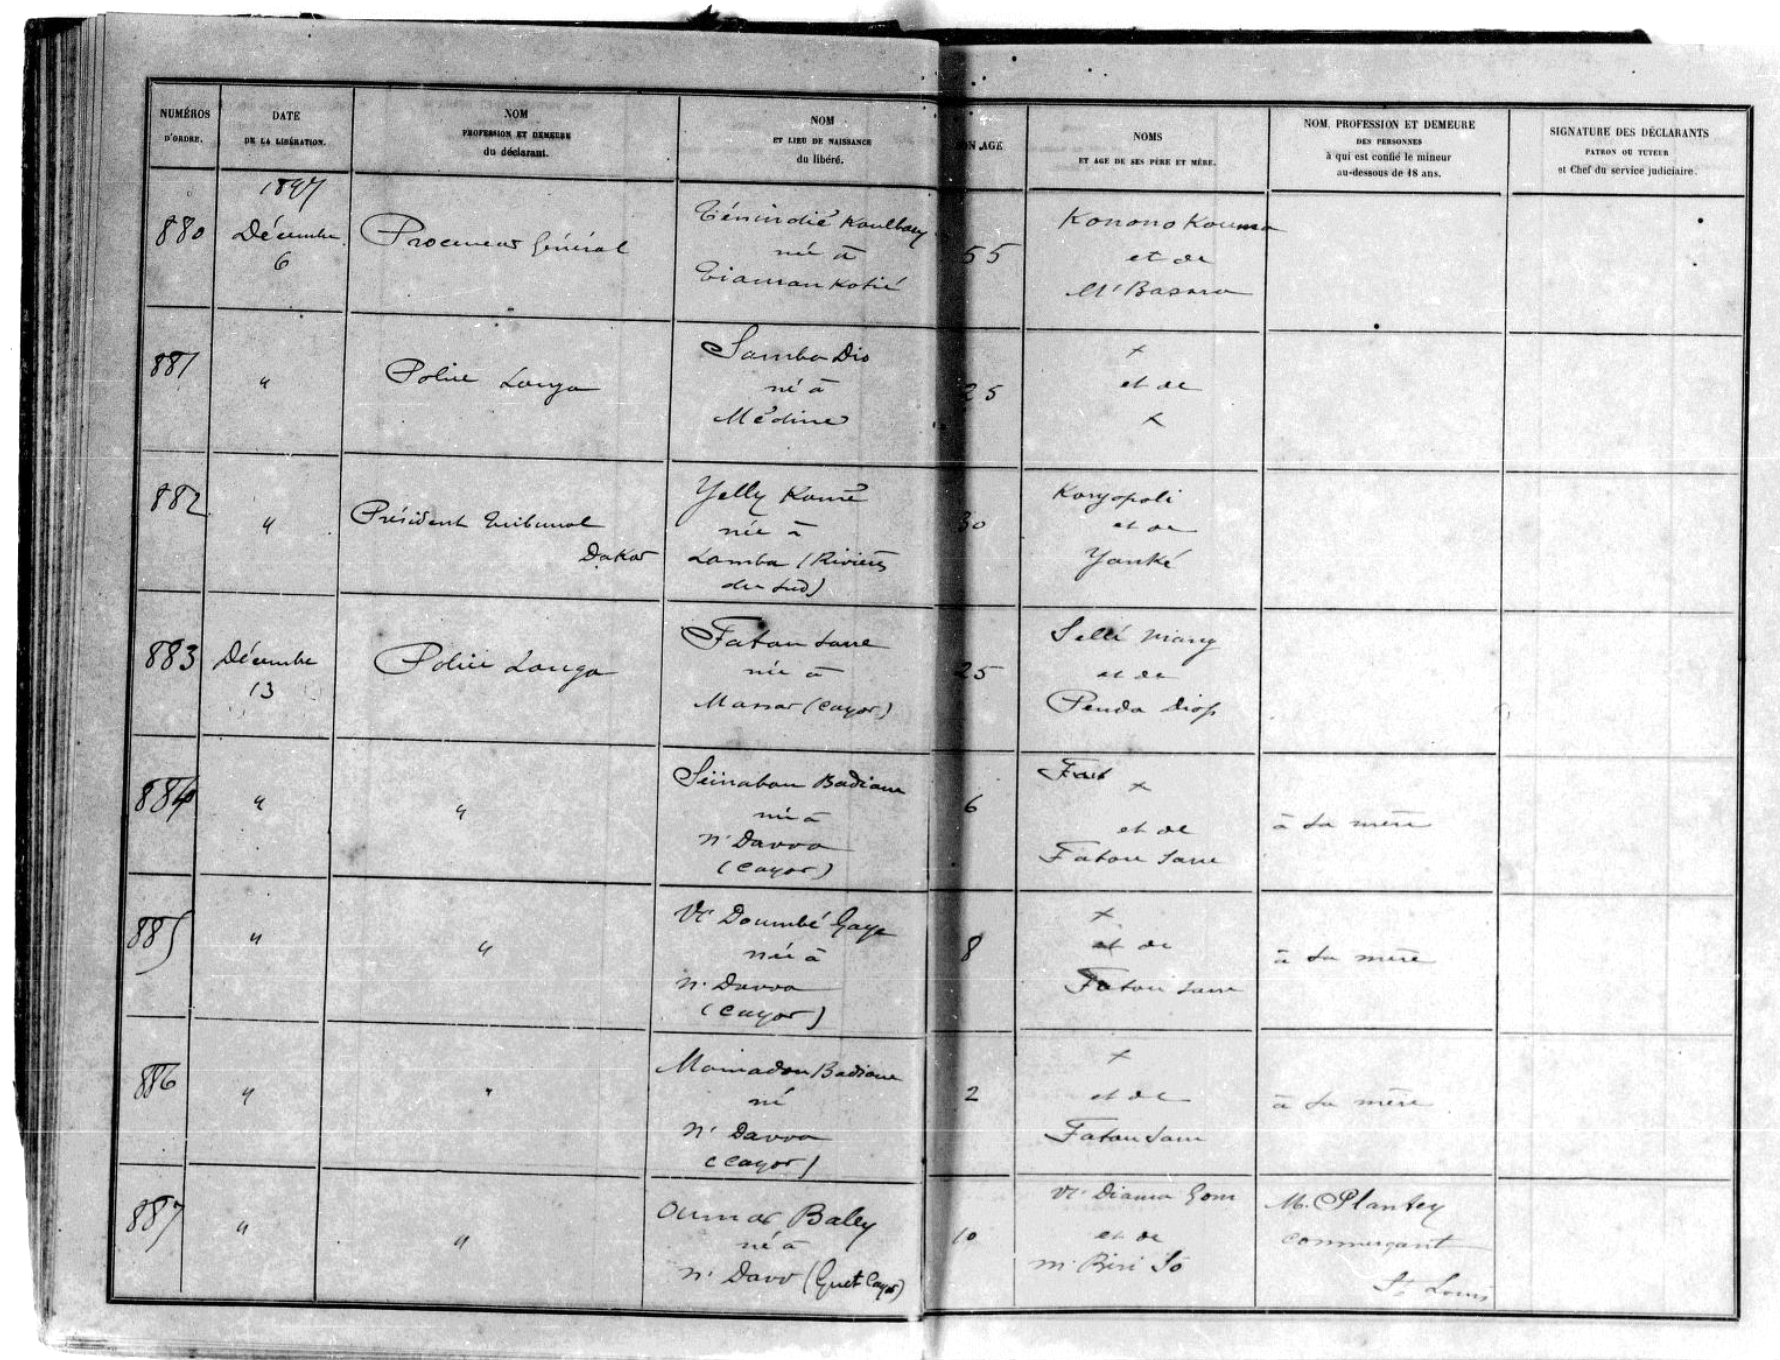 NUMÉROS
D'ORDRE.
DATE
DE LA LIBÉRATION.
NOM
PROFESSION ET DEMEURE
du déclarant.
NOM
ET LIEU DE NAISSANCE
du libéré.
SON AGE
NOMS
ET AGE DE SES PÈRE ET MÈRE.
NOM, PROFESSION ET DEMEURE
DES PERSONNES
à qui est confié le mineur
au-dessous de 18 ans.
SIGNATURE DES DÉCLARANTS
PATRON OU TUTEUR
et Chef du service judiciaire.
1897
880
Décembre
6
Procureur Général
Koulbary
née à
55
Konono Kouma
et de
881
"
Police Louga
Samba Dio
né à
Médine
25
x
et de
x
882
"
Président Tribunal
Dakar
Yelly Kamé
née à
Lamba (Rivières
du Sud)
30
Konyopoli
et de
Yanké
883
Décembre
13
Police Louga
Fatou Sarre
née à
Massar (Cayor)
25
Sellé Niang
et de
Penda Diop
884
"
"
Seinabou Badiane
née à
N'Davva
(Cayor)
6
x
et de
Fatou Sarre
à sa mère
885
"
"
Vr Doumbé Gaye
née à
N'Davva
(Cayor)
8
x
et de
Fatou Sarre
à sa mère
886
"
"
Mamadou Badiane
né
N'Davva
(Cayor)
2
x
et de
Fatou Sarre
à sa mère
887
"
"
Oumar Baley
né à
N'Davv (Guet Cayor)
10
et de
M'Biri So
M. Plantey
commerçant
St Louis